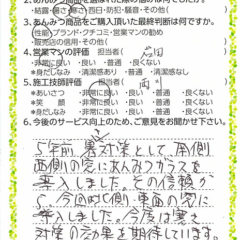 ・結露・暑さ・寒さ・西日・防犯・騒音・その他(　)
3.あんみつ商品をご購入頂いた最終判断は何ですか。
性能・ブランド・クチコミ・営業マンの勧め
販売店の信用・その他(　)
4.営業マンの評価　担当者(　)
*非常に良い　・良い　・普通　・良くない
*身だしなみ　・清潔感あり　・普通　・清潔感なし
5.施工技師評価　・担当者(　)
*あいさつ　・非常に良い　・良い　・普通　・良くない
*笑　顔　・非常に良い　・良い　・普通　・良くない
*身だしなみ　・非常に良い　・良い　・普通　・良くない
6.今後のサービス向上のため、ご意見をお聞かせ下さい。
5年前、暑対策として、南側
西側の窓にあんみつガラスを
導入しました。その信頼か
ら、今回北側・東面の窓に
導入しました。今度は寒さ
対策の効果を期待しています。